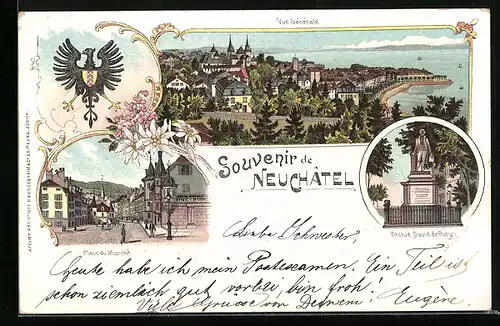 Vue Générale
Souvenir de
NEUCHÂTEL
Place du Marché
Statue David de Pury.
Liebe Schwester,
Heute habe ich mein Postexamen. Ein Teil ist
schon ziemlich gut vorbei, bin froh!
Viele Grüsse von Deinem! Eugène.